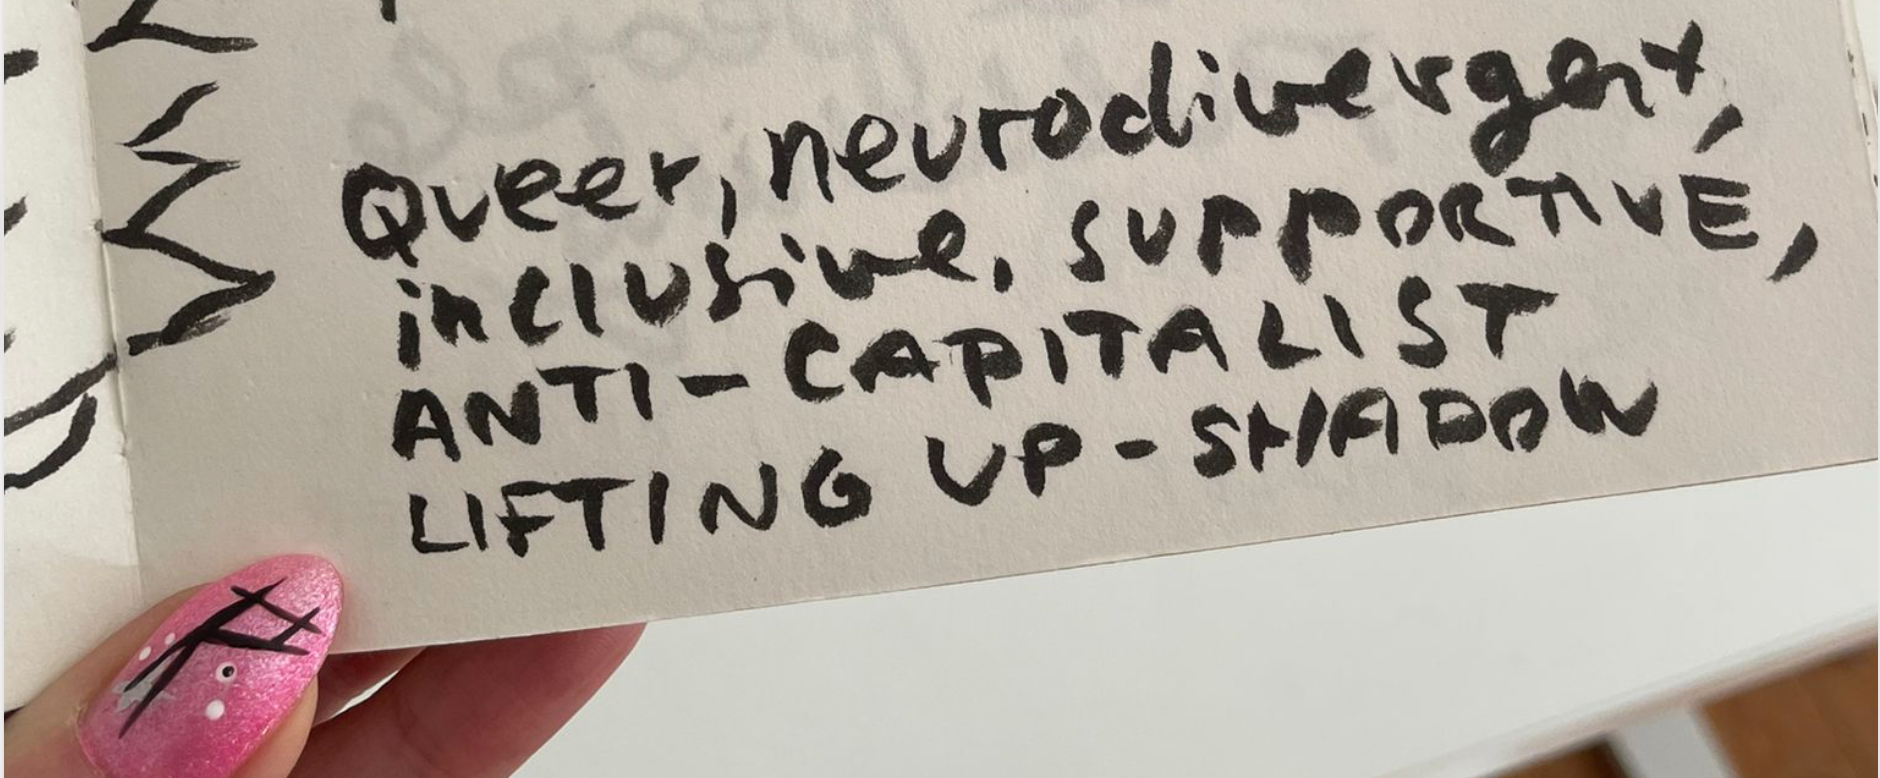 Queer, neurodivergent,
inclusive, SUPPORTIVE,
ANTI-CAPITALIST
LIFTING UP-SHADOW